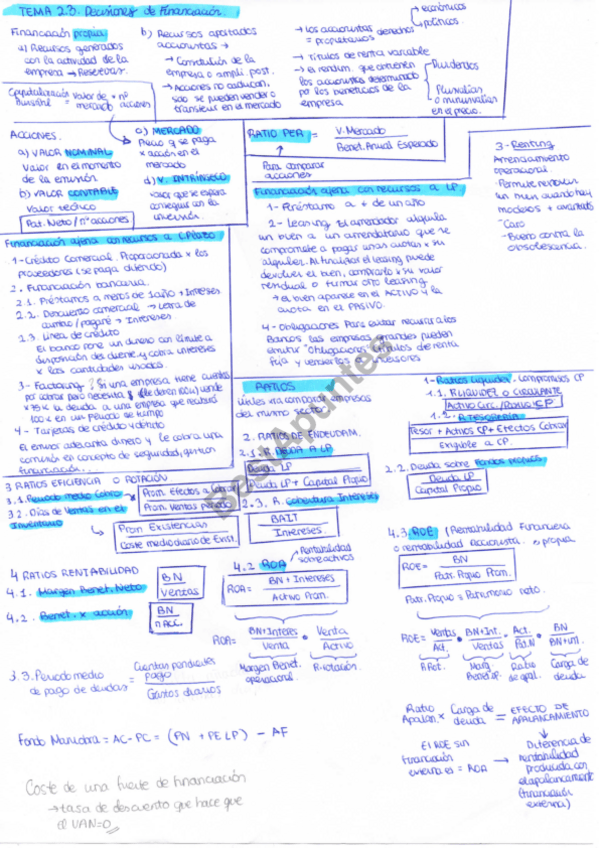 TEMA 2.3. Decisiones de Financiación.
Financiación propia
a) Recursos generados
con la actividad de la
empresa → Reservas.
Capitalización bursátil = valor de mercado × nº acciones
b) Recursos aportados
accionistas →
→ Constitución de la
empresa o ampli. post.
→ Acciones no caducan,
solo se pueden vender o
transferir en el mercado
→ Los accionistas = propietarios
derechos
→ económicos
→ políticos.
→ Títulos de renta variable
→ el rendim. que obtienen
los accionistas determinado
por los beneficios de la
empresa
Dividendos
Plusvalías
o minusvalías
en el precio.
ACCIONES.
a) VALOR NOMINAL
Valor en el momento
de la emisión
b) VALOR CONTABLE
Valor teórico
Pat. Neto / nº acciones
c) MERCADO
Precio q se paga
x acción en el
mercado
d) V. INTRÍNSECO
valor que se espera
conseguir con la
inversión.
RATIO PER = V. Mercado / Benef. Anual Esperado
Para comparar
acciones
Financiación ajena con recursos a LP
1- Préstamo a + de un año
2- Leasing. El arrendador alquila
un bien a un arrendatario que se
compromete a pagar unas cuotas x su
alquiler. Al finalizar el leasing puede
devolver el bien, comprarlo x su valor
residual o firmar otro leasing.
→ el bien aparece en el ACTIVO y la
cuota en el PASIVO.
4- Obligaciones. Para evitar recurrir a los
Bancos las empresas grandes pueden
emitir "Obligaciones" títulos de renta
fija y venderlos a inversores
3- Renting
Arrendamiento
operacional.
· Permite renovar
un inm. cuando hay
modelos + avanzados
· Caro
· Bueno contra la
obsolescencia.
Financiación ajena con recursos a C.Plazo
1- Crédito Comercial. Proporcionada x los
proveedores (se paga diferido)
2. Financiación bancaria.
2.1. Préstamos a menos de 1 año + Intereses.
2.2. Descuento comercial → Letra de
cambio / pagaré → Intereses
2.3. Línea de crédito
El banco pone un dinero con límite a
disposición del cliente y cobra intereses
x las cantidades usadas.
3- Factoring. Si una empresa tiene cuentas
por cobrar pero necesita
(le deben 100€) vende
x 95€ la deuda a una empresa que recibirá
100€ en un período de tiempo
4- Tarjetas de crédito y débito
El emisor adelanta dinero y le cobra una
comisión en concepto de seguridad, gestión
financiación...
RATIOS
Útiles para comparar empresas
del mismo sector.
1- Ratios Liquidez. Compromisos CP
1.1. R. LIQUIDEZ O CIRCULANTE
Activo Circ. / Pasivo CP
1.2. R. TESORERÍA
Tesor + Activos CP + Efectos Cobrar / Exigible a CP.
2. RATIOS DE ENDEUDAM.
2.1. R. DEUDA A LP
Deuda LP / Deuda LP + Capital Propio
2.2. Deuda sobre fondos propios
Deuda LP / Capital Propio
2.3. R. Cobertura Intereses
BAIT / Intereses.
3 RATIOS EFICIENCIA O ROTACIÓN
3.1. Periodo medio Cobro = Prom. Efectos a Cobrar / Prom. Ventas período
3.2. Días de Ventas en el
Inventario
Prom Existencias / Coste medio diario de Exist.
4 RATIOS RENTABILIDAD
4.1. Margen Benef. Neto BN / Ventas
4.2. Benef. x acción BN / nº ACC.
4.2 ROA → Rentabilidad sobre activos
ROA = BN + Intereses / Activo Prom.
ROA = BN + Interes / Venta · Venta / Activo
Margen Benef. operacional. Rotación.
4.3. ROE (Rentabilidad Financiera
o rentabilidad accionista o propia
ROE = BN / Patr. Propio Prom.
Patr. Propio = Patrimonio neto.
ROE = Ventas / Act. · BN + Int. / Ventas · Act. / Pat.N · BN / BN + Int.
R.Rot. Marg. Benef. op. Ratio de apal. Carga de deuda
3.3. Periodo medio de pago de deudas = Cuentas pendientes pago / Gastos diarios
Ratio Apalan. x Carga de deuda = EFECTO DE APALANCAMIENTO
El ROE sin
financiación
externa es = ROA
→ Diferencia de
rentabilidad
producida con
el apalancamiento
(financiación
externa)
Fondo Maniobra = AC - PC = (PN + PE LP) - AF
Coste de una fuente de financiación
→ tasa de descuento que hace que
el VAN = 0
BasiApuntes